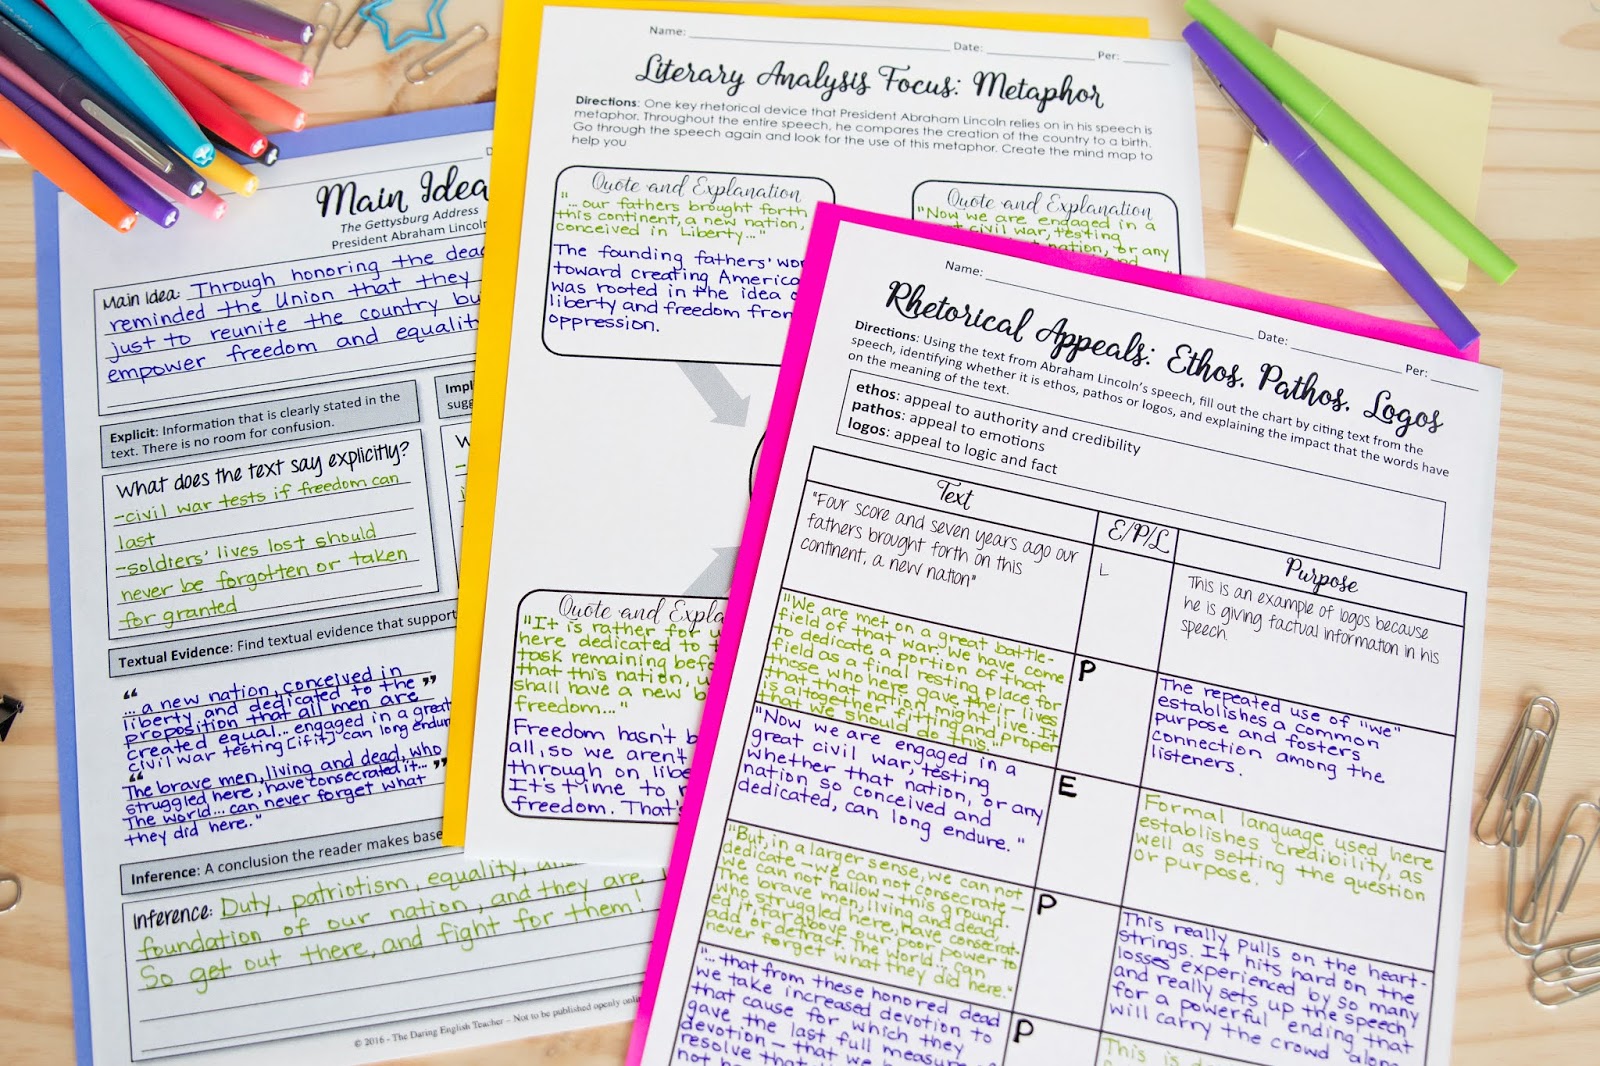 Main Idea
The Gettysburg Address
President Abraham Lincoln
Main Idea: Through honoring the dead
reminded the Union that they
just to reunite the country bu
empower freedom and equality
Explicit: Information that is clearly stated in the
text. There is no room for confusion.
Impl
sugg
What does the text say explicitly?
-civil war tests if freedom can
last
-soldiers' lives lost should
never be forgotten or taken
for granted
W
Textual Evidence: Find textual evidence that support
"... a new nation, conceived in
liberty and dedicated to the
proposition that all men are
created equal... engaged in a great
civil war testing [if it] can long endur
"
"The brave men, living and dead, who
struggled here, have consecrated it...
The world... can never forget what
they did here."
Inference: A conclusion the reader makes base
Inference: Duty, patriotism, equality,
foundation of our nation, and they are
So get out there, and fight for them!
© 2016 - The Daring English Teacher – Not to be published openly onlin
Name: Date: Per:
Literary Analysis Focus: Metaphor
Directions: One key rhetorical device that President Abraham Lincoln relies on in his speech is
metaphor. Throughout the entire speech, he compares the creation of the country to a birth.
Go through the speech again and look for the use of this metaphor. Create the mind map to
help you
Quote and Explanation
"... our fathers brought forth
this continent, a new nation,
conceived in Liberty..."
The founding fathers' wor
toward creating America
was rooted in the idea o
liberty and freedom from
oppression.
Quote and Explanation
"Now we are engaged in a
civil war, testing
nation, or any
Quote and Expla
"It is rather for u
here dedicated to
task remaining befo
that this nation, u
shall have a new b
freedom..."
Freedom hasn't b
all, so we aren't
through on libe
It's time to
freedom. That's
Name: Date: Per:
Rhetorical Appeals: Ethos, Pathos, Logos
Directions: Using the text from Abraham Lincoln's speech, fill out the chart by citing text from the
speech, identifying whether it is ethos, pathos or logos, and explaining the impact that the words have
on the meaning of the text.
ethos: appeal to authority and credibility
pathos: appeal to emotions
logos: appeal to logic and fact
Text E/P/L Purpose
"Four score and seven years ago our
fathers brought forth on this
continent, a new nation"
L
This is an example of logos because
he is giving factual information in his
speech.
"We are met on a great battle-
field of that war. We have come
to dedicate a portion of that
field as a final resting place for
those who here gave their lives
that that nation might live. It
is altogether fitting and proper
that we should do this."
P
The repeated use of "we"
establishes a common
purpose and fosters
connection among the
listeners.
"Now we are engaged in a
great civil war, testing
whether that nation, or any
nation so conceived and
dedicated, can long endure."
E
Formal language used here
establishes credibility, as
well as setting the question
or purpose.
"But, in a larger sense, we can not
dedicate – we can not consecrate –
we can not hallow – this ground.
The brave men, living and dead,
who struggled here, have consecrat-
ed it, far above our poor power to
add or detract. The world... can
never forget what they did here."
P
This really pulls on the heart-
strings. It hits hard on the
losses experienced by so many
and really sets up the speech
for a powerful ending that
will carry the crowd along
"... that from these honored dead
we take increased devotion to
that cause for which they
gave the last full measure
devotion – that we
resolve that
not
P
This is